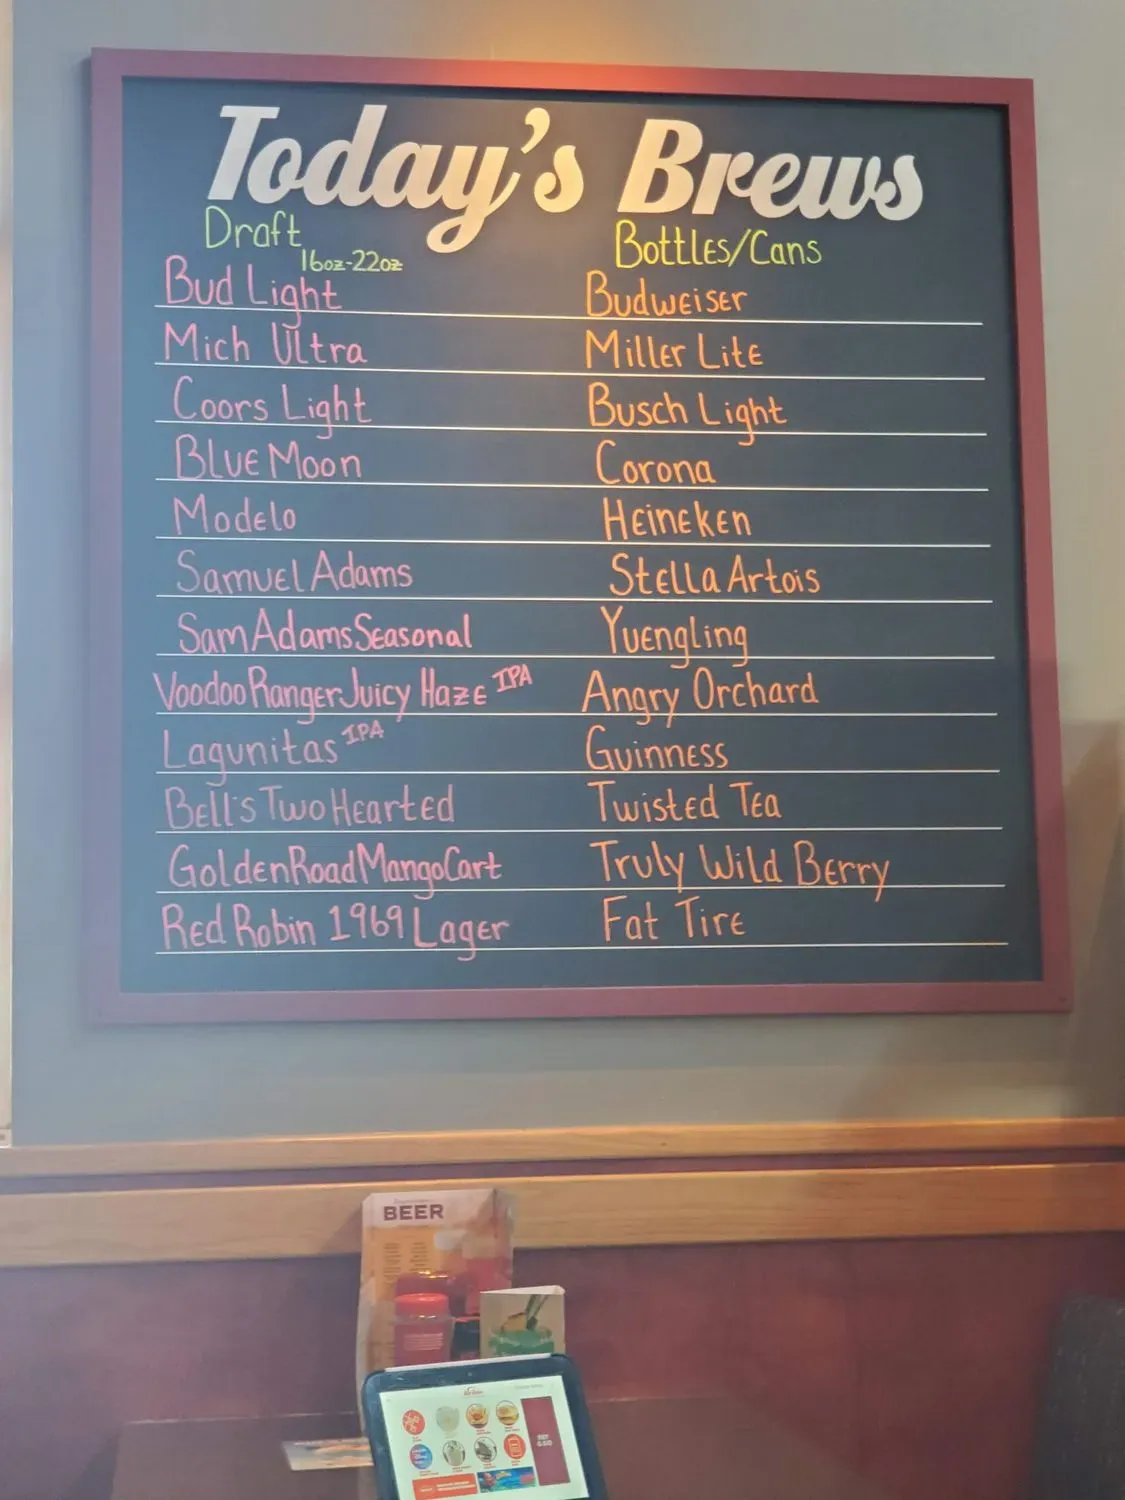 Today's Brews
Draft
16oz-22oz
Bud Light
Mich Ultra
Coors Light
Blue Moon
Modelo
Samuel Adams
Sam Adams Seasonal
Voodoo Ranger Juicy Haze IPA
Lagunitas IPA
Bell's Two Hearted
Golden Road Mango Cart
Red Robin 1969 Lager
Bottles/Cans
Budweiser
Miller Lite
Busch Light
Corona
Heineken
Stella Artois
Yuengling
Angry Orchard
Guinness
Twisted Tea
Truly Wild Berry
Fat Tire
BEER